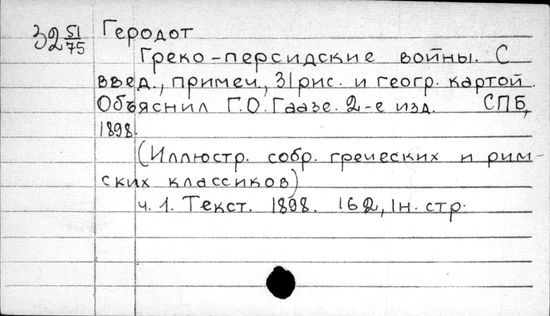 32 51/75 Геродот
Греко-персидские войны. С
введ., примеч., 31 рис. и геогр. картой.
Объяснил Г.О. Гаазе. 2-е изд. СПБ,
1898.
(Иллюстр. собр. греческих и рим-
ских классиков)
ч. 1. Текст. 1898. 162, 1н. стр.